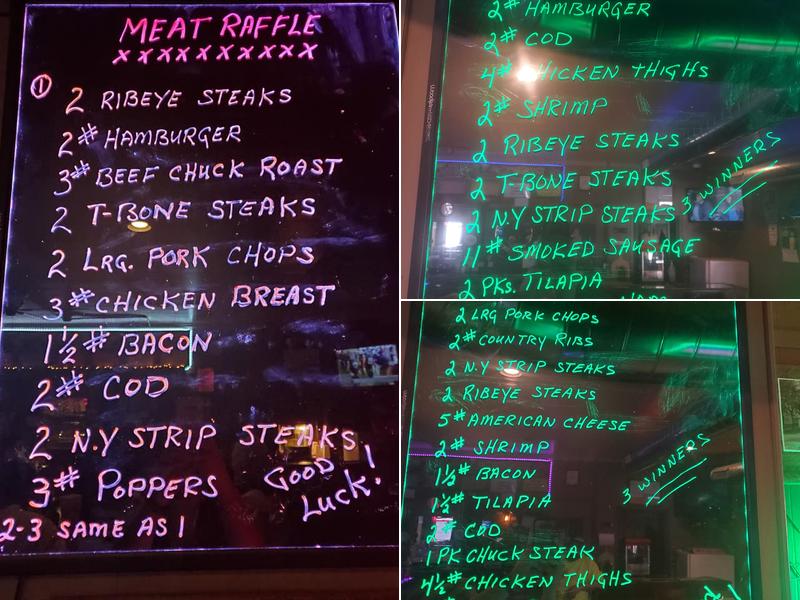 MEAT RAFFLE
XXXXXXXXXX
① 2 RIBEYE STEAKS
2# HAMBURGER
3# BEEF CHUCK ROAST
2 T-BONE STEAKS
2 LRG. PORK CHOPS
3# CHICKEN BREAST
1½# BACON
2# COD
2 N.Y STRIP STEAKS
3# POPPERS
GOOD
LUCK!
2-3 SAME AS 1
2# HAMBURGER
2# COD
4# CHICKEN THIGHS
2# SHRIMP
2 RIBEYE STEAKS
2 T-BONE STEAKS
2 N.Y STRIP STEAKS
3 WINNERS
11# SMOKED SAUSAGE
2 PKS. TILAPIA
2 LRG PORK CHOPS
2# COUNTRY RIBS
2 N.Y STRIP STEAKS
2 RIBEYE STEAKS
5# AMERICAN CHEESE
2# SHRIMP
1½# BACON
3 WINNERS
1½# TILAPIA
2# COD
1 PK CHUCK STEAK
4½# CHICKEN THIGHS